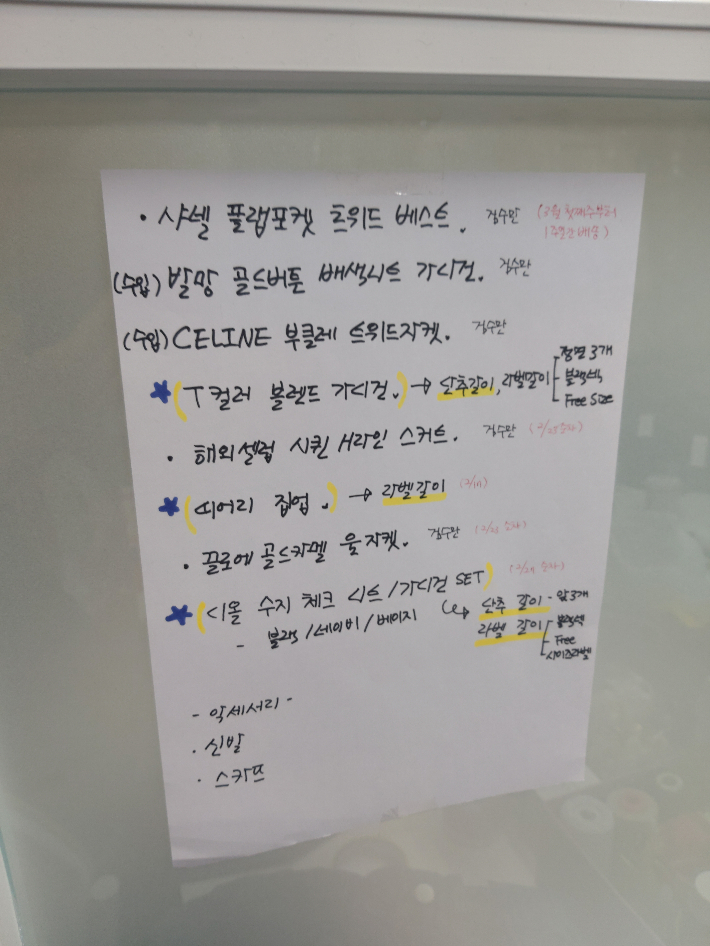 · 샤넬 플랩포켓 트위드 베스트. 검수만 (2월 첫째주부터
1주일간배송)
(수입) 발망 골드버튼 배색니트 가디건. 검수만
(수입) CELINE 부클레 트위드자켓. 검수만
★ (T 컬러 블렌드 가디건.) → 단추갈이, 라벨갈이 - 정면 3개
- 블랙색,
- Free Size
· 해외셀럽 시퀸 H라인 스커트. 검수만
★ (띠어리 집업.) → 라벨갈이
· 끌로에 골드카멜 울자켓. 검수만
★ (디올 수지 체크 니트/가디건 SET)
- 블랙/네이비/베이지 → 단추 갈이 - 앞3개
라벨 갈이 - 블랙색
- Free
- 사이즈라벨
- 악세서리 -
· 신발
· 스카프